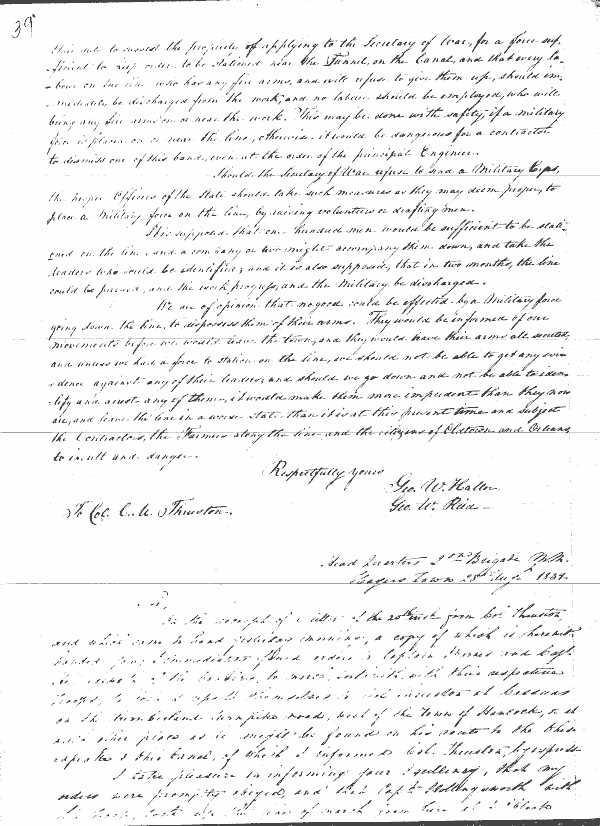 39
this rule to consult the propriety of applying to the Secretary of War, for a force suf-
ficient to keep order, to be stationed near the Tunnel, on the Canal, and that every la-
-bourer on the line who has any fire arms, and will refuse to give them up, should im-
mediately be discharged from the work, and no labourer should be employed, who will
bring any fire arms on or near the work. This may be done with safety, if a military
force is placed on or near the line, otherwise it would be dangerous for a contractor
to dismiss one of this band, even at the order of the principal Engineer.
Should the Secretary of War refuse to send a Military Corps,
the proper Officers of the State should take such measures as they may deem proper, to
place a Military force on the line, by raising volunteers or drafting men.
It is supposed that one hundred men would be sufficient to be stati-
oned on the line, and a company or two might accompany them down, and take the
leaders who could be identified; and it is also supposed, that in two months, the line
could be peaceed, and the work progress, and the Military be discharged.
We are of opinion that no good could be effected by a Military force
going down the line, to dispossess them of their arms. They would be informed of our
movements before we would leave the town, and they would have their arms all secreted,
and unless we had a force to station on the line, we should not be able to get any evi-
-dence against any of their leaders, and should we go down and not be able to iden-
tify and arrest any of them, it would make them more impudent than they now
are, and leave the line in a worse state than it is at this present time and subject
the Contractors, the Farmers along the line and the citizens of Oldtown and Orleans,
to insult and danger.
Respectfully yours
Geo. W. Haller
Geo. W. Reid
To Col. C. M. Thruston.
Head Quarters 2nd Brigade M.M.
Hagers Town 28th Augt 1839.
Sir,
On the receipt of a letter of the 20th inst. from Col. Thruston
and which came to hand yesterday morning, a copy of which is herewith
handed you, I immediately issued orders to Captain and Capt.
of the to march, with their respective
troops, to and report themselves to at
on the Cumberland turnpike road, west of the town of Hancock, or at
such other place as it might be found on his route to the Ches-
apeake & Ohio Canal, of which I informed Col. Thruston, by express.
I take pleasure in informing your Excellency, that my
orders were promptly obeyed, and that Capt. Hollingsworth with
his troop, took up the line of march from here at 2 o'clock